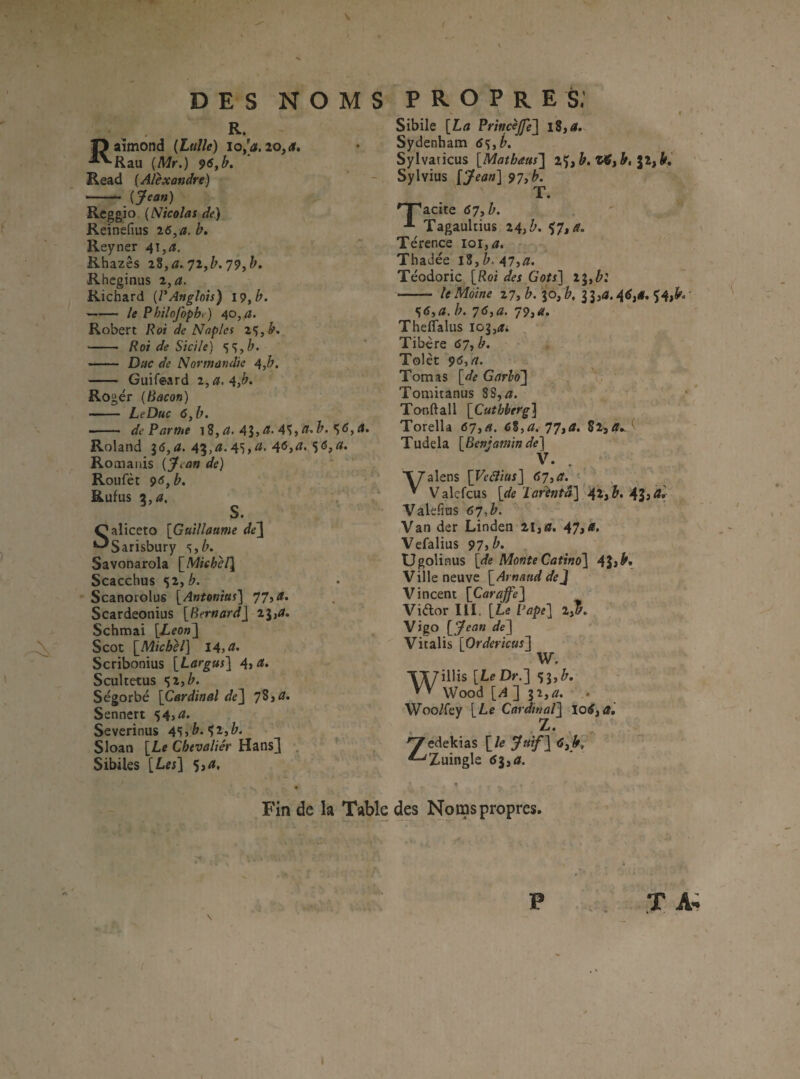 DES NOMS PROPRES.
R.
Raimond (Lulle) 10,a. 20,a.
Rau (Mr.) 96,b.
Read (Alèxandre)
—— (Jean)
Reggio (Nicolas de)
Reinesius 26,a. b.
Reyner 41,a.
Rhazês 28,a. 72,b. 79,b.
Rheginus 2,a.
Richard (l'Anglois) 19,b.
—— le Philosophe) 40,a.
Robert Roi de Naples 25,b.
—— Roi de Sicile) 55,b.
—— Duc de Normandie 4,b.
—— Guiseard 2,a. 4,b.
Rogér (Bacon)
—— LeDuc 6,b.
—— de Parme 18,a. 43,a. 45,a. b. 56,a.
Roland 36,a. 43,a. 45,a. 46,a. 56,a.
Romanis (Jean de)
Roufèt 96,b.
Rufus 3,a.
S.
Saliceto [Guillaume de]
Sarisbury 5,b.
Savonarola [Michèl]
Scacchus 52,b.
Scanorolus [Antonius] 77,a.
Scardeonius [Bernard] 23,a.
Schmai [Leon]
Scot [Michèl] 14,a.
Scribonius [Largus] 4,a.
Scultetus 52,b.
Ségorbé [Cardinal de] 78,a.
Sennert 54,a.
Severinus 45,b. 52,b.
Sloan [Le Chevaliér Hans]
Sibiles [Les] 5,a.
Sibile [La Princèsse] 18,a.
Sydenham 65,b.
Sylvaticus [Mathæus] 25,b. 26,b. 32,b.
Sylvius [Jean] 97,b.
T.
Tacite 67,b.
Tagaultius 24,b. 57,a.
Térence 101,a.
Thadée 18,b. 47,a.
Téodoric [Roi des Gots] 23,b.
—— le Moine 27,b. 30,b. 33,a. 46,a. 54,b.
56,a. b. 76,a. 79,a.
Thessalus 103,a.
Tibère 67,b.
Tolèt 96,a.
Tomas [de Garbo]
Tomitanus 88,a.
Tonstall [Cuthberg]
Torella 67,a. 68,a. 77,a. 82,a.
Tudela [Benjamin de]
V.
Valens [Vectius] 67,a.
Valescus [de Tarèntâ] 42,b. 43,a.
Valesius 67,b.
Van der Linden 21,a. 47,a.
Vesalius 97,b.
Ugolinus [de Monte Catino] 43,b.
Ville neuve [Arnaud de]
Vincent [Caraffe]
Victor III. [Le Pape] 2,b.
Vigo [Jean de]
Vitalis [Ordericus]
W.
Willis [Le Dr.] 53,b.
Wood [A] 32,a.
Woolsey [Le Cardinal] 106,a.
Z.
Zedekias [le Juif] 6,b.
Zuingle 63,a.
Fin de la Table des Noms propres.
P TA-